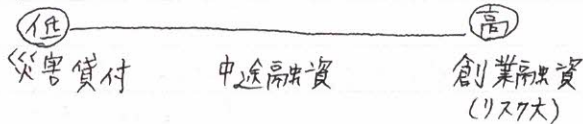 低 高
災害貸付 中途融資 創業融資
(リスク大)